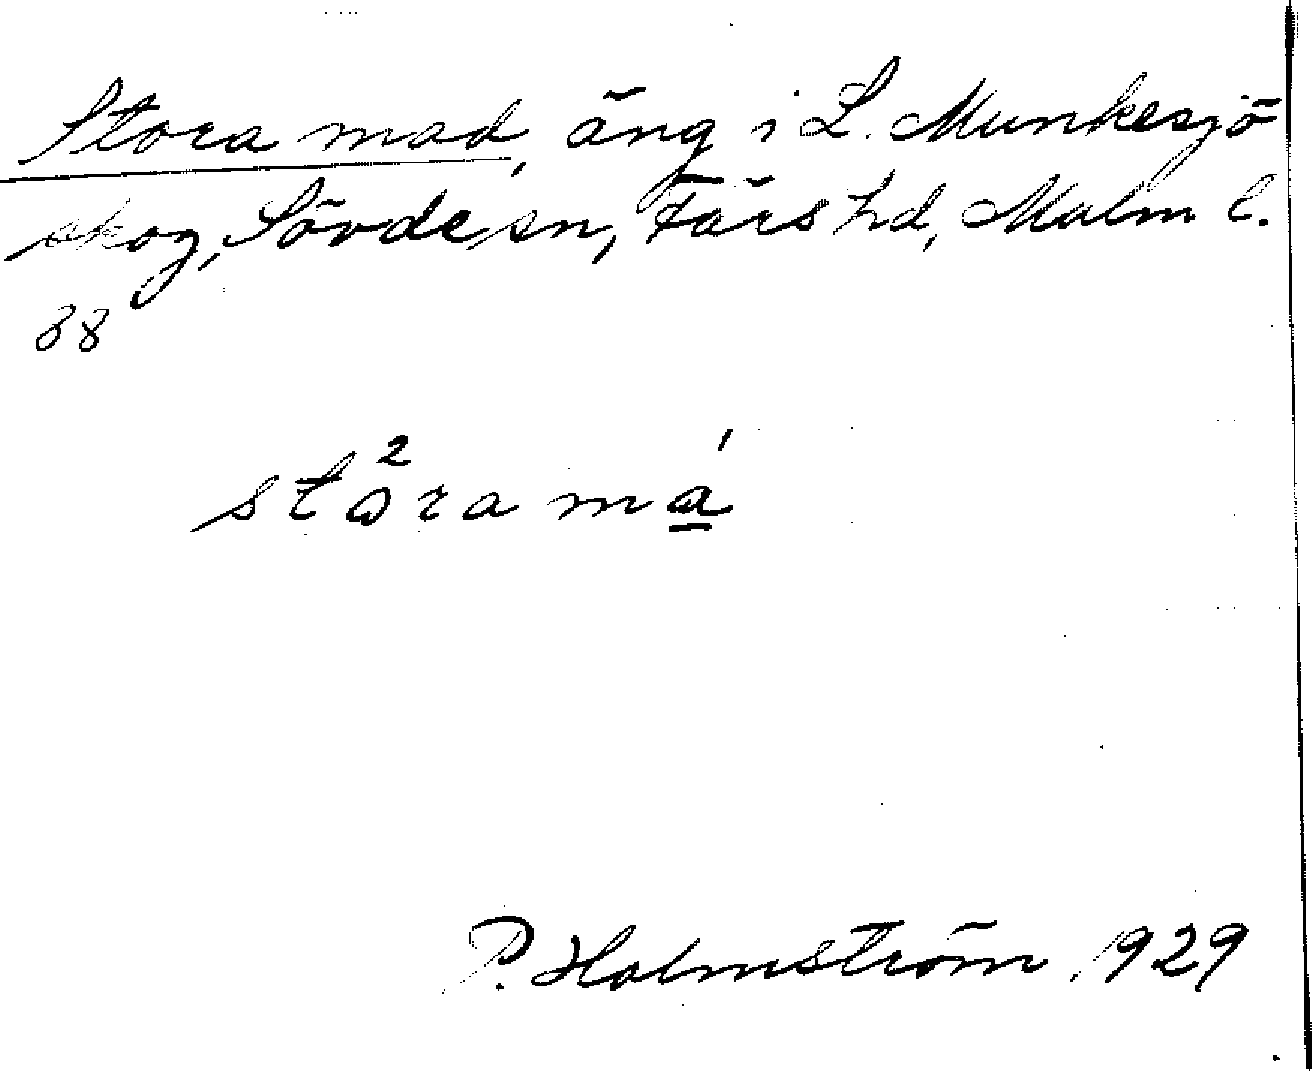 Stora mad, äng i L. Munkesjö
skog, Sövde sn, Färs hd, Malm l.
38
stω²ra ma̲ˊ
P. Holmström 1929